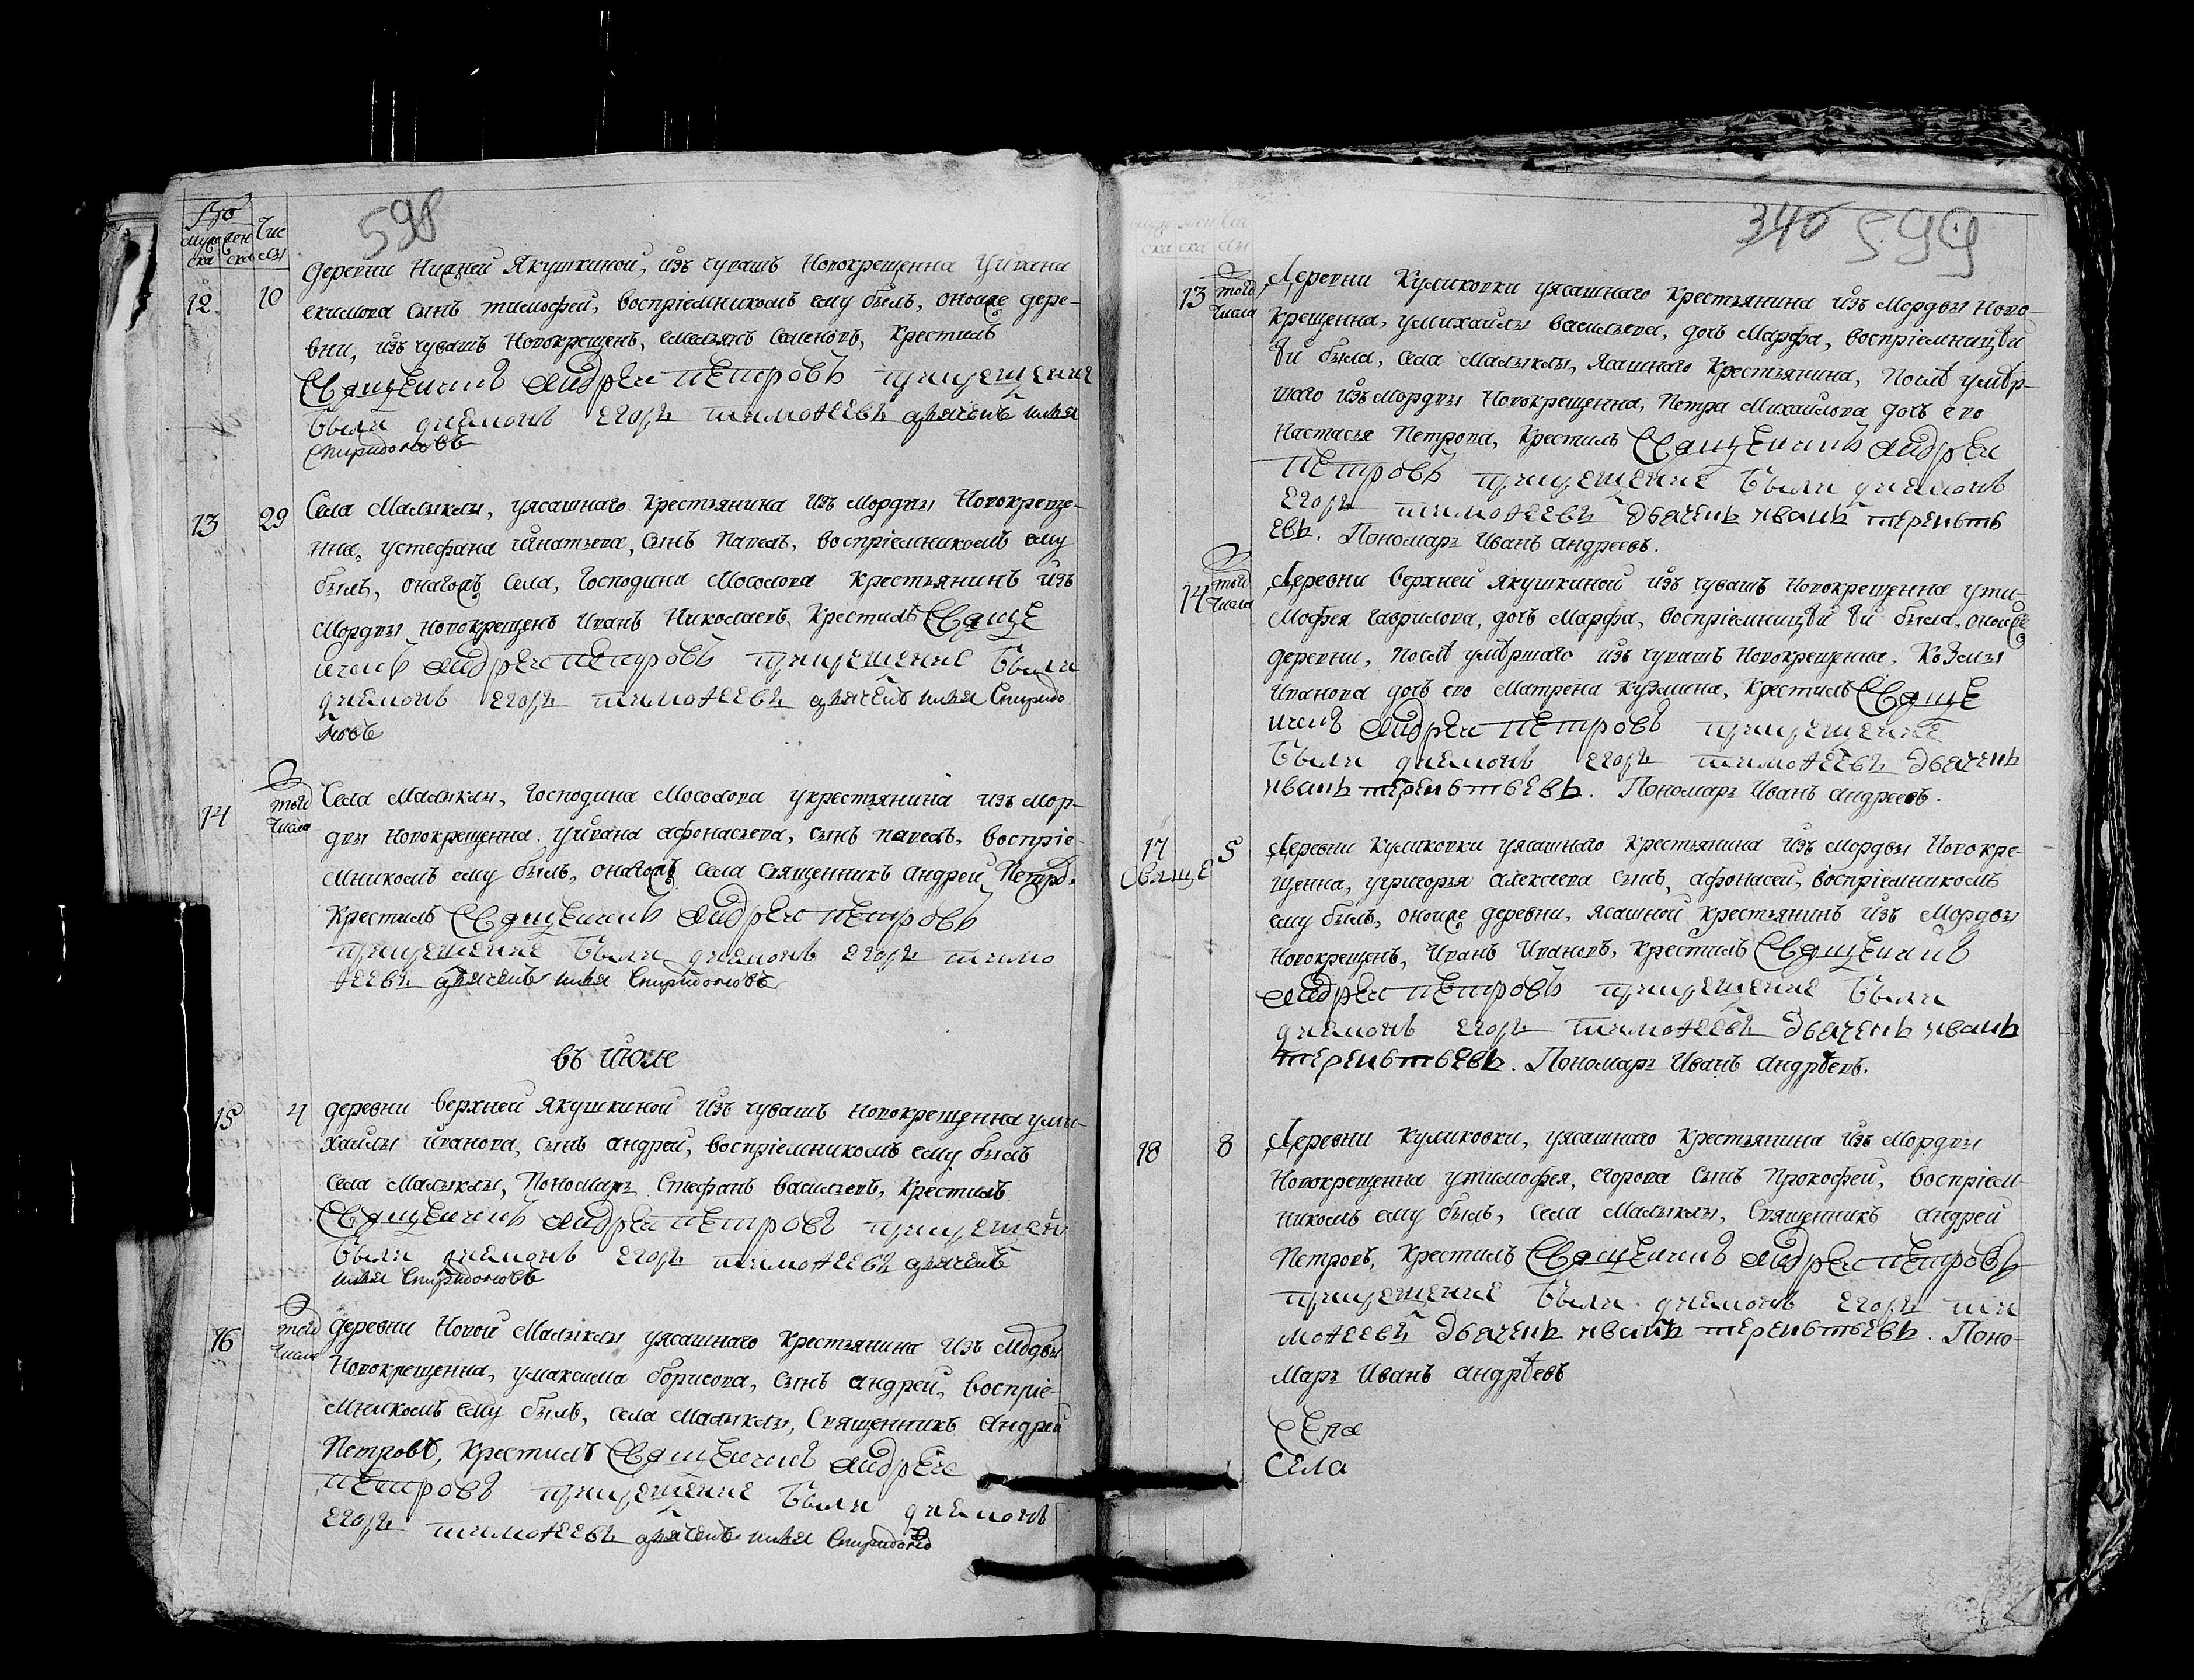 598
муже
ска
жен
ска
Чис
лы
12
10
деревни Нижней Якушкиной, изъ чувашъ новокрещенна уивана
екимова сынъ тимофей, воспріемникомъ ему былъ, оноиже дере-
вни, изъ чувашъ новокрещенъ, емельянъ семеновъ, крестилъ
Священникъ андреи петровъ причещение
были диаконъ егоръ тимоѳеевъ дьячекъ илья
Спиридоновъ
13
29
Села Малыклы, уясашнаго крестьянина изъ мордвы новокреще-
нна, устефана игнатьева, сынъ павелъ, воспріемникомъ ему
былъ, онагожъ села, господина Мосолова крестьянинъ изъ
мордвы новокрещенъ иванъ Николаевъ, крестилъ Свяще
никъ андреи петровъ причещение были
диаконъ егоръ тимоѳеевъ дьячекъ илья Спиридо
новъ
14
того
числа
Села Малыклы, господина Мосолова укрестьянина изъ мор-
двы новокрещенна уивана афонасьева, сынъ павелъ, воспріе-
мникомъ ему былъ, онагожъ села священникъ андреи Петро.
крестилъ Священникъ андреи петровъ
причещение были диаконъ егоръ тимо
ѳеевъ дьячекъ илья Спиридоновъ
въ июле
15
4
деревни верхней якушкиной изъ чувашъ новокрещенна уми-
хаилы иванова, сынъ андреи, воспріемникомъ ему былъ
села малыклы, Пономарь Стефанъ васильевъ, крестилъ
Священникъ андреи петровъ
были диаконъ егоръ тимоѳеевъ дьячекъ
илья Спиридоновъ
16
того
числа
деревни Новой Малыклы уясашнаго крестьянина изъ модвы
новокрещенна, умаксима борисова, сынъ андреи, воспріе-
мникомъ ему былъ, села малыклы, Священникъ андреи
Петровъ, крестилъ Священникъ андреи
петровъ причещение были диаконъ
егоръ тимоѳеевъ дьячекъ илья Спиридоно
340 599
13
того
числа
Деревни Куликовки уясашнаго крестьянина изъ мордвы ново-
крещенна, умихаилы васильева, дочь марфа, воспріемницѣи
ѣи была, села малыклы, ясашнаго крестьянина, послѣ умѣр-
шаго изъ мордвы новокрещенна, петра михаилова дочь его
настасья петрова, крестилъ Священникъ андреи
петровъ причещение были диаконъ
егоръ тимоѳеевъ дьячекъ иванъ теренть
евъ. Пономарь Иванъ андреевъ.
14
того
числа
Деревни верхней якушкиной изъ чувашъ новокрещенна ути-
мофея гаврилова, дочь марфа, воспріемницѣи ѣи была, оноиже
деревни, послѣ умѣршаго изъ чувашъ новокрещенна, козмы
иванова дочь его матрена кузмина, крестилъ Свяще
никъ андреи петровъ причещение
были диаконъ егоръ тимоѳеевъ дьячекъ
иванъ терентьевъ. Пономарь Иванъ андреевъ.
17
Свяще
5
Деревни куликовки уясашнаго крестьянина изъ мордвы новокре-
щенна, угригорья алексеева сынъ, афонасеи, воспріемникомъ
ему былъ, оноиже деревни, ясашной крестьянинъ изъ мордвы
новокрещенъ, иванъ ивановъ, крестилъ Священникъ
андреи петровъ причещение были
диаконъ егоръ тимоѳеевъ дьячекъ иванъ
терентьевъ. Пономарь Иванъ андрѣевъ.
18
8
Деревни куликовки, уясашнаго крестьянина изъ мордвы
новокрещенна утимофея, егорова сынъ прокофеи, воспріем-
никомъ ему былъ, села малыклы, Священникъ андреи
петровъ, крестилъ Священникъ андреи петровъ
причещение были диаконъ егоръ ти
моѳеевъ дьячекъ иванъ терентьевъ. Поно-
марь Иванъ андрѣевъ
Села
Села